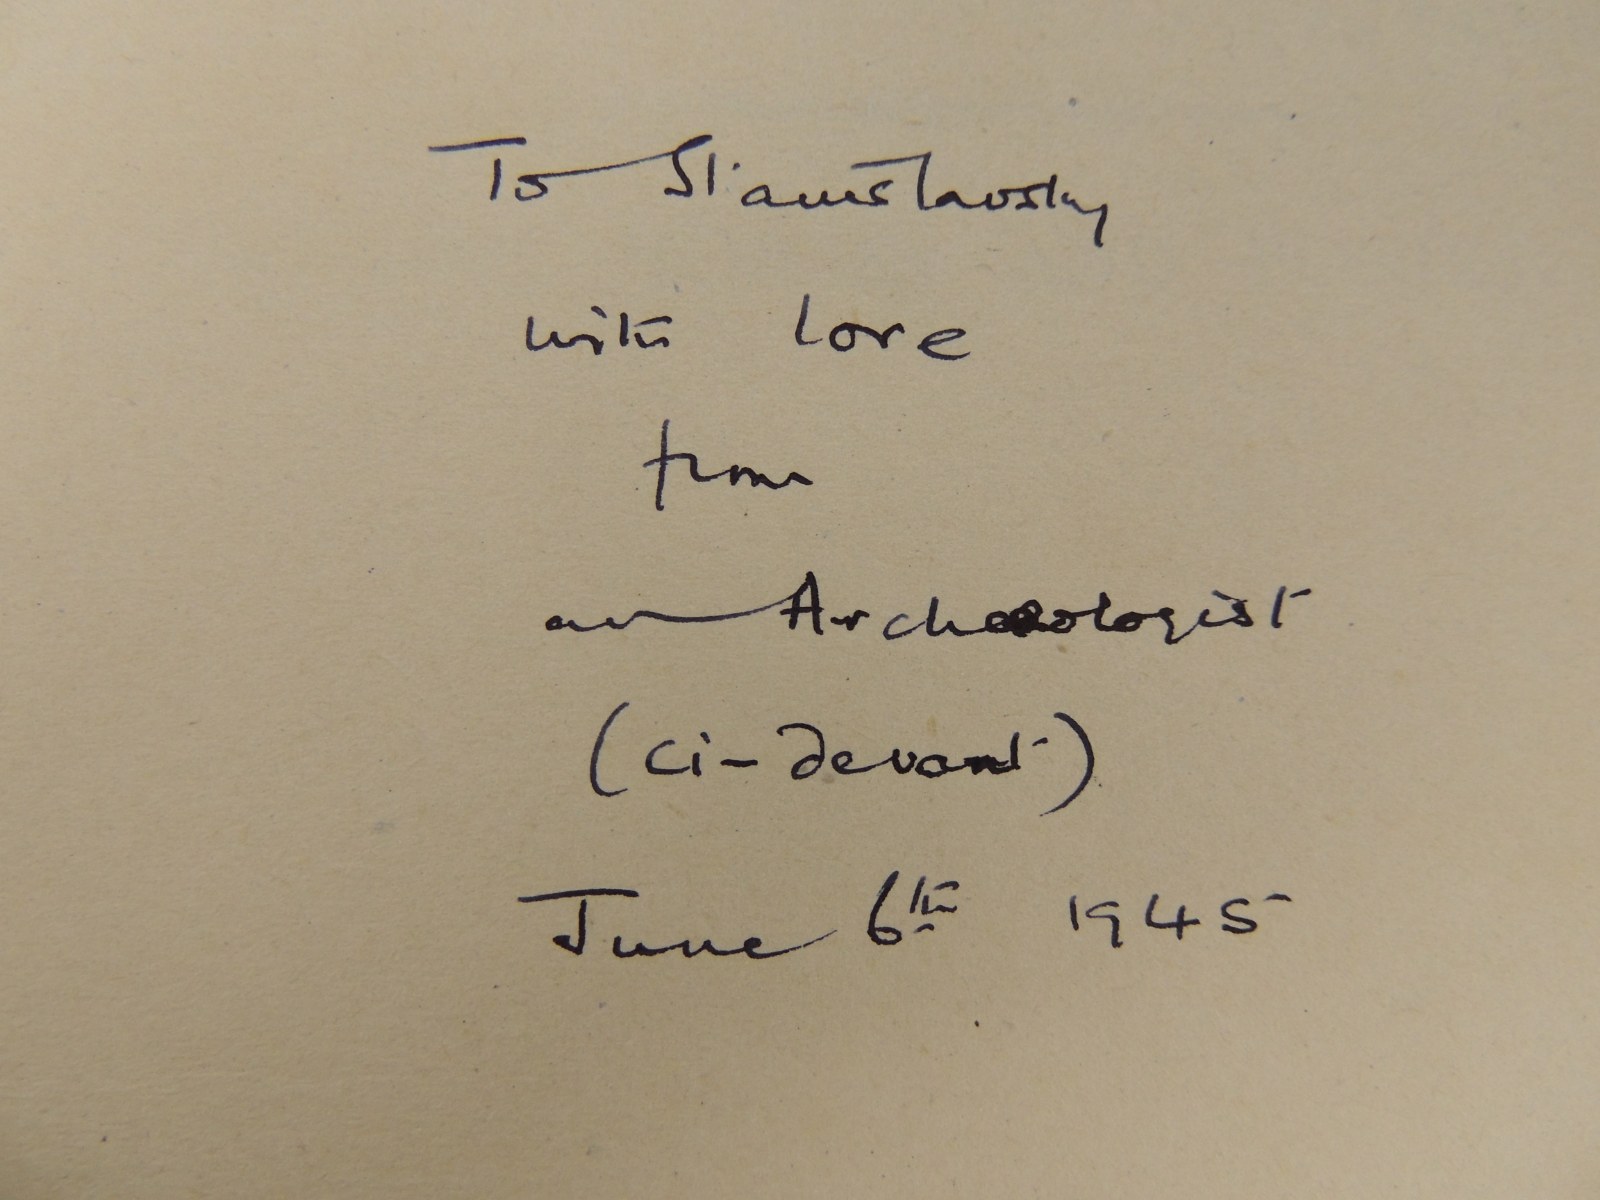 To Stanislavsky
with love
from
an Archaeologist
(ci-devant)
June 6th 1945